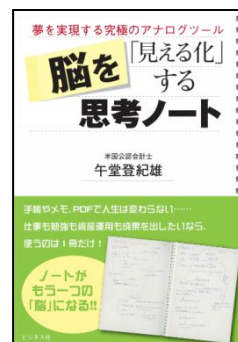 夢を実現する究極のアナログツール
脳を「見える化」する
思考ノート
米国公認会計士
午堂登紀雄
手帳やメモ、PDFで人生は変わらない……
仕事も勉強も資産運用も成果を出したいなら、
使うのは1冊だけ!
ノートが
もう一つの
「脳」になる!!
ビジネス社